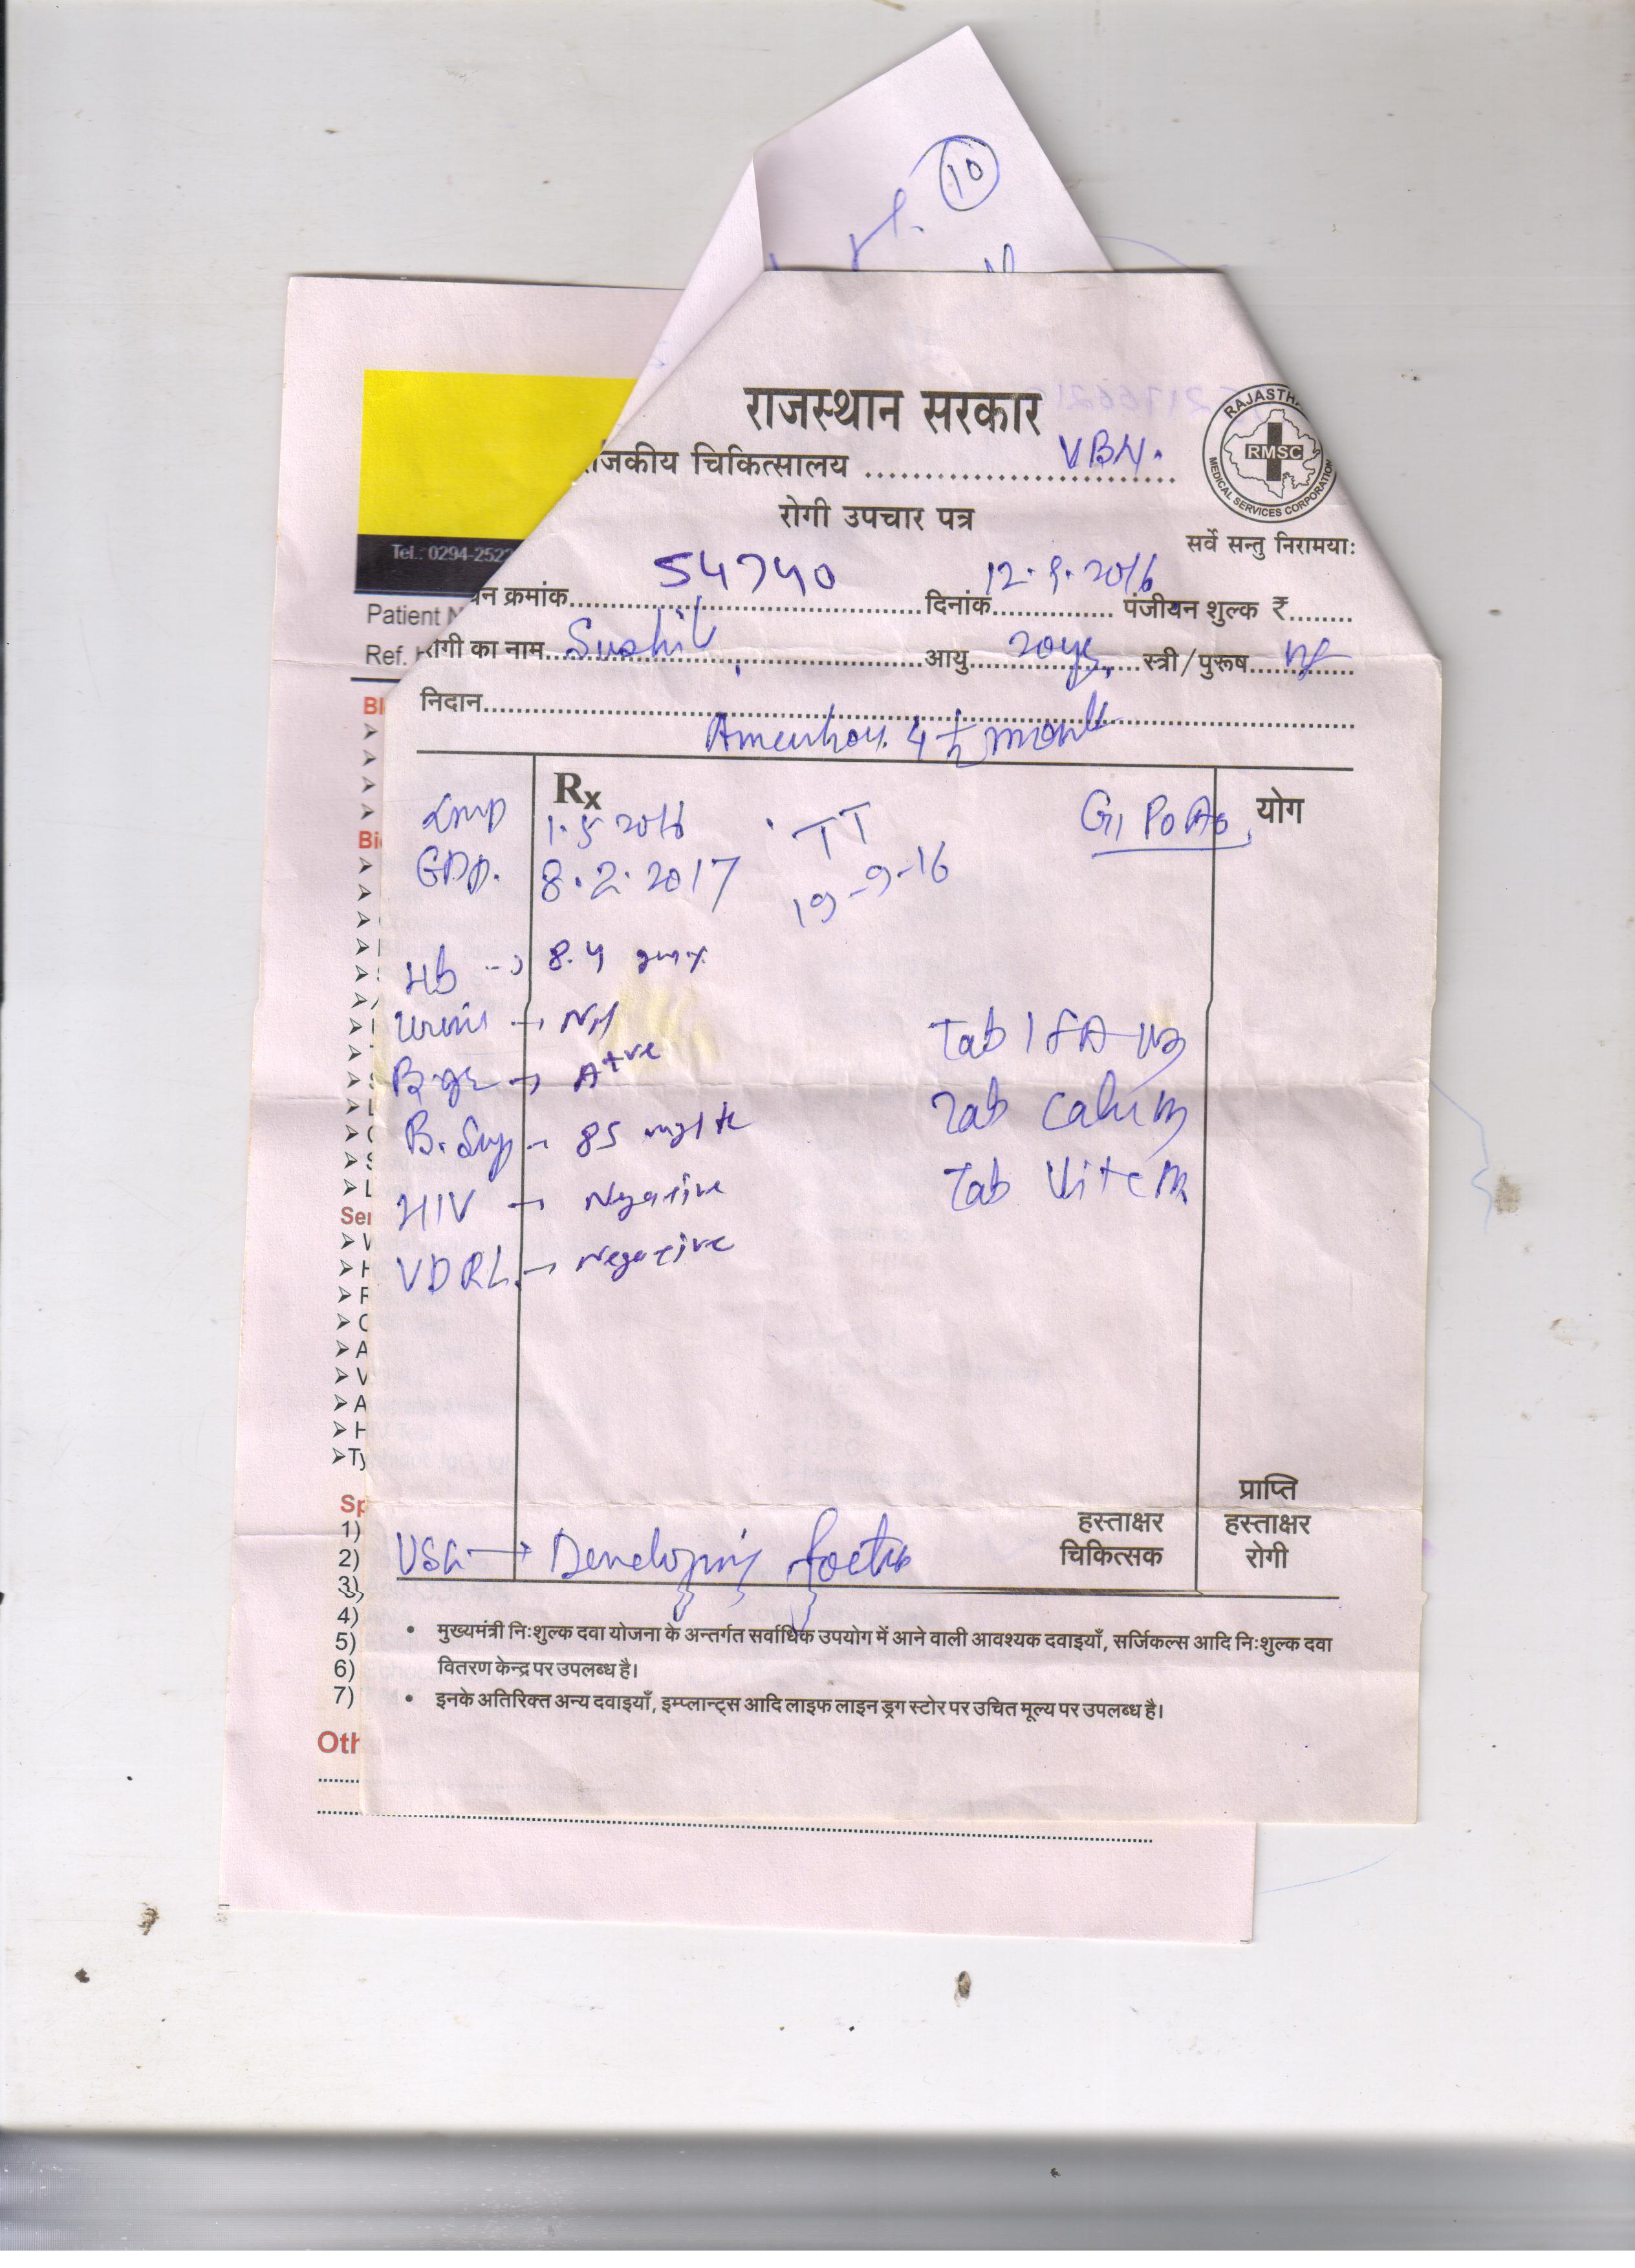 10
राजस्थान सरकार
जकीय चिकित्सालय .......................... VBN.
रोगी उपचार पत्र
RAJASTHA
RMSC
MEDICAL SERVICES CORPORATION
सर्वे सन्तु निरामयाः
Tel.: 0294-252
यन क्रमांक 54740 दिनांक 12.9.2016 पंजीयन शुल्क ₹
Patient N
Ref.
रोगी का नाम आयु 20 स्त्री/पुरूष
निदान
4 1/2 month
Rx
G1 P0 A0
योग
LMP 1.5.2016 TT
EDD. 8.2.2017 19-9-16
Hb → 8.4 gm%
Urine → Nil
A+ve
B. Sug → 85
HIV → Negative
VDRL → Negative
Tab IFA
Tab
Tab
Bi
Ser
Ty
Sp
1)
2)
3)
4)
5)
6)
7)
Oth
प्राप्ति
हस्ताक्षर हस्ताक्षर
चिकित्सक रोगी
USG → Developing foetus
• मुख्यमंत्री निःशुल्क दवा योजना के अन्तर्गत सर्वाधिक उपयोग में आने वाली आवश्यक दवाइयाँ, सर्जिकल्स आदि निःशुल्क दवा
वितरण केन्द्र पर उपलब्ध है।
• इनके अतिरिक्त अन्य दवाइयाँ, इम्प्लान्ट्स आदि लाइफ लाइन ड्रग स्टोर पर उचित मूल्य पर उपलब्ध है।